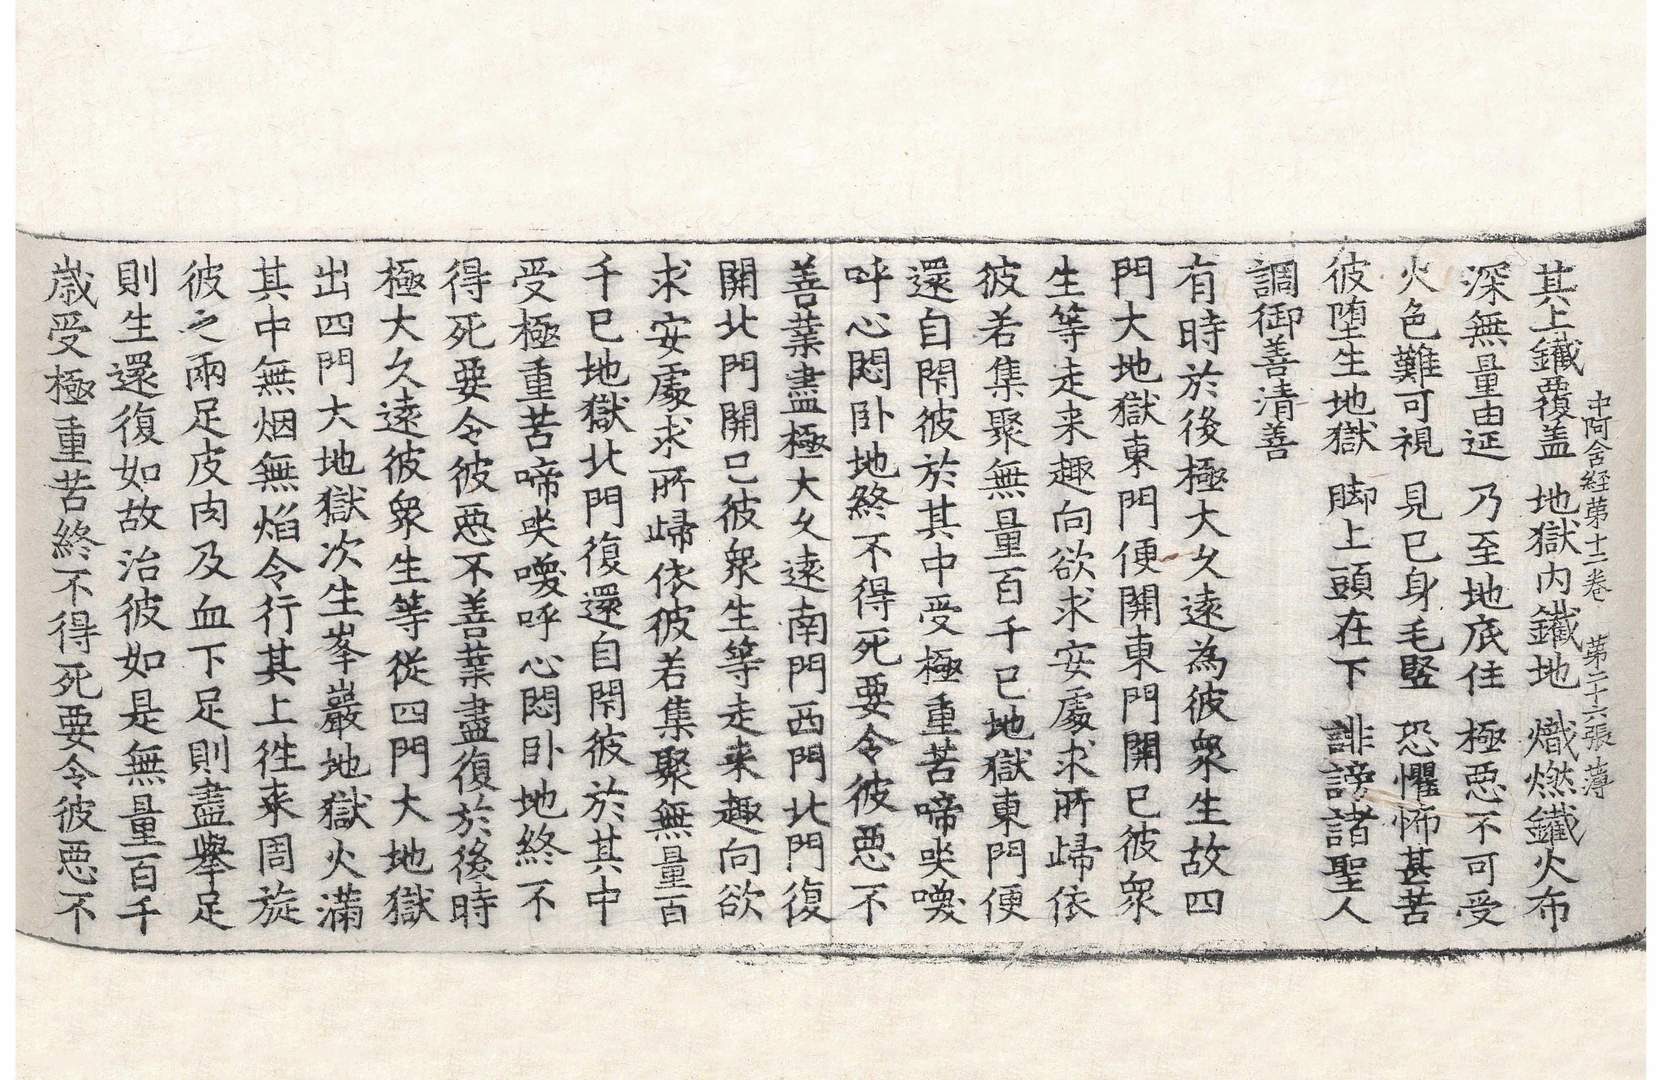 中阿含經第十二卷　第二十六張　薄
其上鐵覆蓋　地獄內鐵地　熾燃鐵火布
深無量由延　乃至地底住　極惡不可受
火色難可視　見已身毛竪　恐懼怖甚苦
彼堕生地獄　脚上頭在下　誹謗諸聖人
調御善清善
有時於後極大久遠為彼衆生故四
門大地獄東門便開東門開已彼衆
生等走来趣向欲求安處求所歸依
彼若集聚無量百千已地獄東門便
還自閇彼於其中受極重苦啼哭喚
呼心悶卧地終不得死要令彼惡不
善業盡極大久遠南門西門北門復
開北門開已彼衆生等走来趣向欲
求安處求所歸依彼若集聚無量百
千已地獄北門復還自閇彼於其中
受極重苦啼哭喚呼心悶卧地終不
得死要令彼惡不善業盡復於後時
極大久遠彼衆生等從四門大地獄
出四門大地獄次生峯巖地獄火滿
其中無烟無焰令行其上往来周旋
彼之兩足皮肉及血下足則盡擧足
則生還復如故治彼如是無量百千
歲受極重苦終不得死要令彼惡不